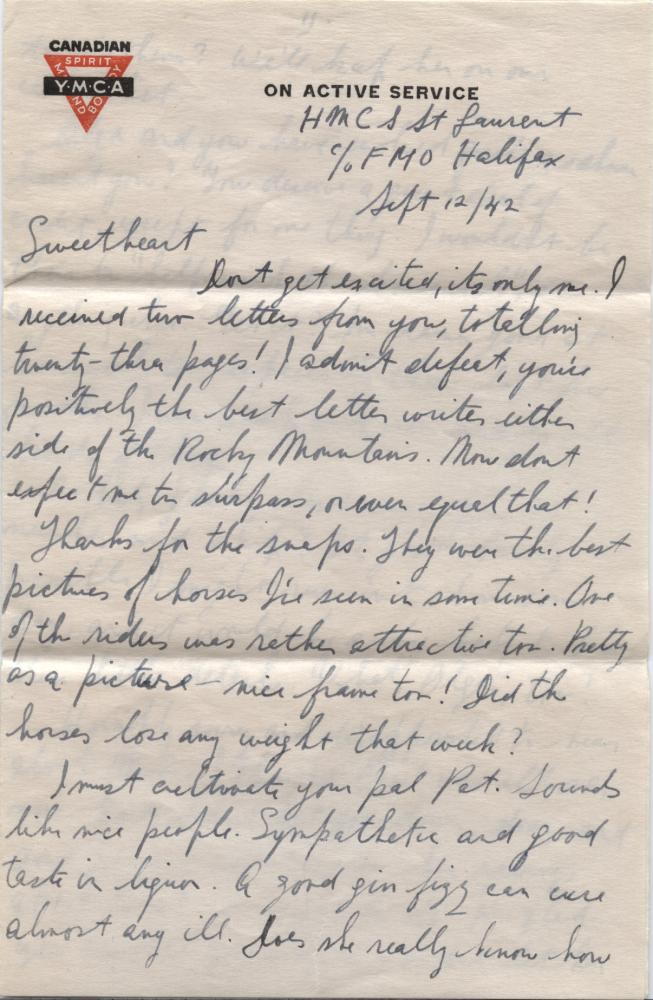 CANADIAN
SPIRIT
Y·M·C·A
MIND BODY
ON ACTIVE SERVICE
HMCS St Laurent
c/o FMO Halifax
Sept 12/42
Sweetheart
Dont get excited, its only me. I
received two letters from you, totalling
twenty-three pages! I admit defeat, you're
positively the best letter writer either
side of the Rocky Mountains. Now dont
expect me to surpass, or even equal that!
Thanks for the snaps. They were the best
pictures of horses I've seen in some time. One
of the riders was rather attractive too. Pretty
as a picture - nice frame too! Did the
horses lose any weight that week?
I must cultivate your pal Pat. Sounds
like nice people. Sympathetic and good
taste in liquor. A good gin fizz can cure
almost any ill. Does she really know how